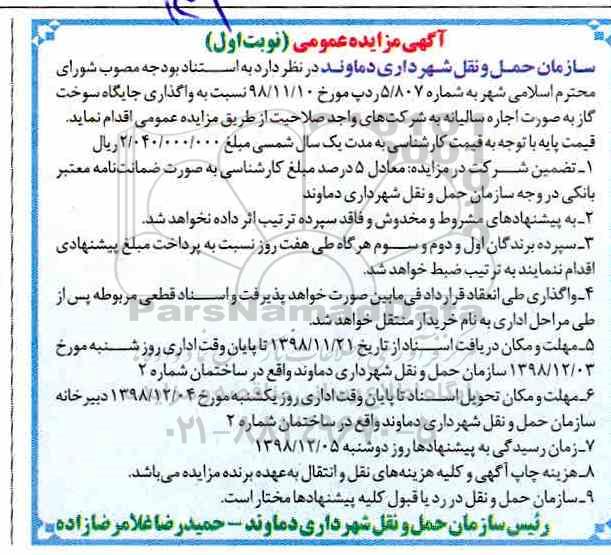 آگهی مزایده عمومی (نوبت اول)
سازمان حمل و نقل شهرداری دماوند در نظر دارد به استناد بودجه مصوب شورای
محترم اسلامی شهر به شماره ۵/۸۰۷ ر د پ مورخ ۹۸/۱۱/۱۰ نسبت به واگذاری جایگاه سوخت
گاز به صورت اجاره سالیانه به شرکت‌های واجد صلاحیت از طریق مزایده عمومی اقدام نماید.
قیمت پایه با توجه به قیمت کارشناسی به مدت یک سال شمسی مبلغ ۲/۰۴۰/۰۰۰/۰۰۰ ریال
۱ـ تضمین شرکت در مزایده: معادل ۵ درصد مبلغ کارشناسی به صورت ضمانت‌نامه معتبر
بانکی در وجه سازمان حمل و نقل شهرداری دماوند
۲ـ به پیشنهادهای مشروط و مخدوش و فاقد سپرده ترتیب اثر داده نخواهد شد.
۳ـ سپرده برندگان اول و دوم و سوم هرگاه طی هفت روز نسبت به پرداخت مبلغ پیشنهادی
اقدام ننمایند به ترتیب ضبط خواهد شد.
۴ـ واگذاری طی انعقاد قرارداد فی‌مابین صورت خواهد پذیرفت و اسناد قطعی مربوطه پس از
طی مراحل اداری به نام خریدار منتقل خواهد شد.
۵ـ مهلت و مکان دریافت اسناد از تاریخ ۱۳۹۸/۱۱/۲۱ تا پایان وقت اداری روز شنبه مورخ
۱۳۹۸/۱۲/۰۳ سازمان حمل و نقل شهرداری دماوند واقع در ساختمان شماره ۲
۶ـ مهلت و مکان تحویل اسناد تا پایان وقت اداری روز یکشنبه مورخ ۱۳۹۸/۱۲/۰۴ دبیرخانه
سازمان حمل و نقل شهرداری دماوند واقع در ساختمان شماره ۲
۷ـ زمان رسیدگی به پیشنهادها روز دوشنبه ۱۳۹۸/۱۲/۰۵
۸ـ هزینه چاپ آگهی و کلیه هزینه‌های نقل و انتقال به‌عهده برنده مزایده می‌باشد.
۹ـ سازمان حمل و نقل در رد یا قبول کلیه پیشنهادها مختار است.
رئیس سازمان حمل و نقل شهرداری دماوند – حمیدرضا غلامرضازاده
ParsNamadData